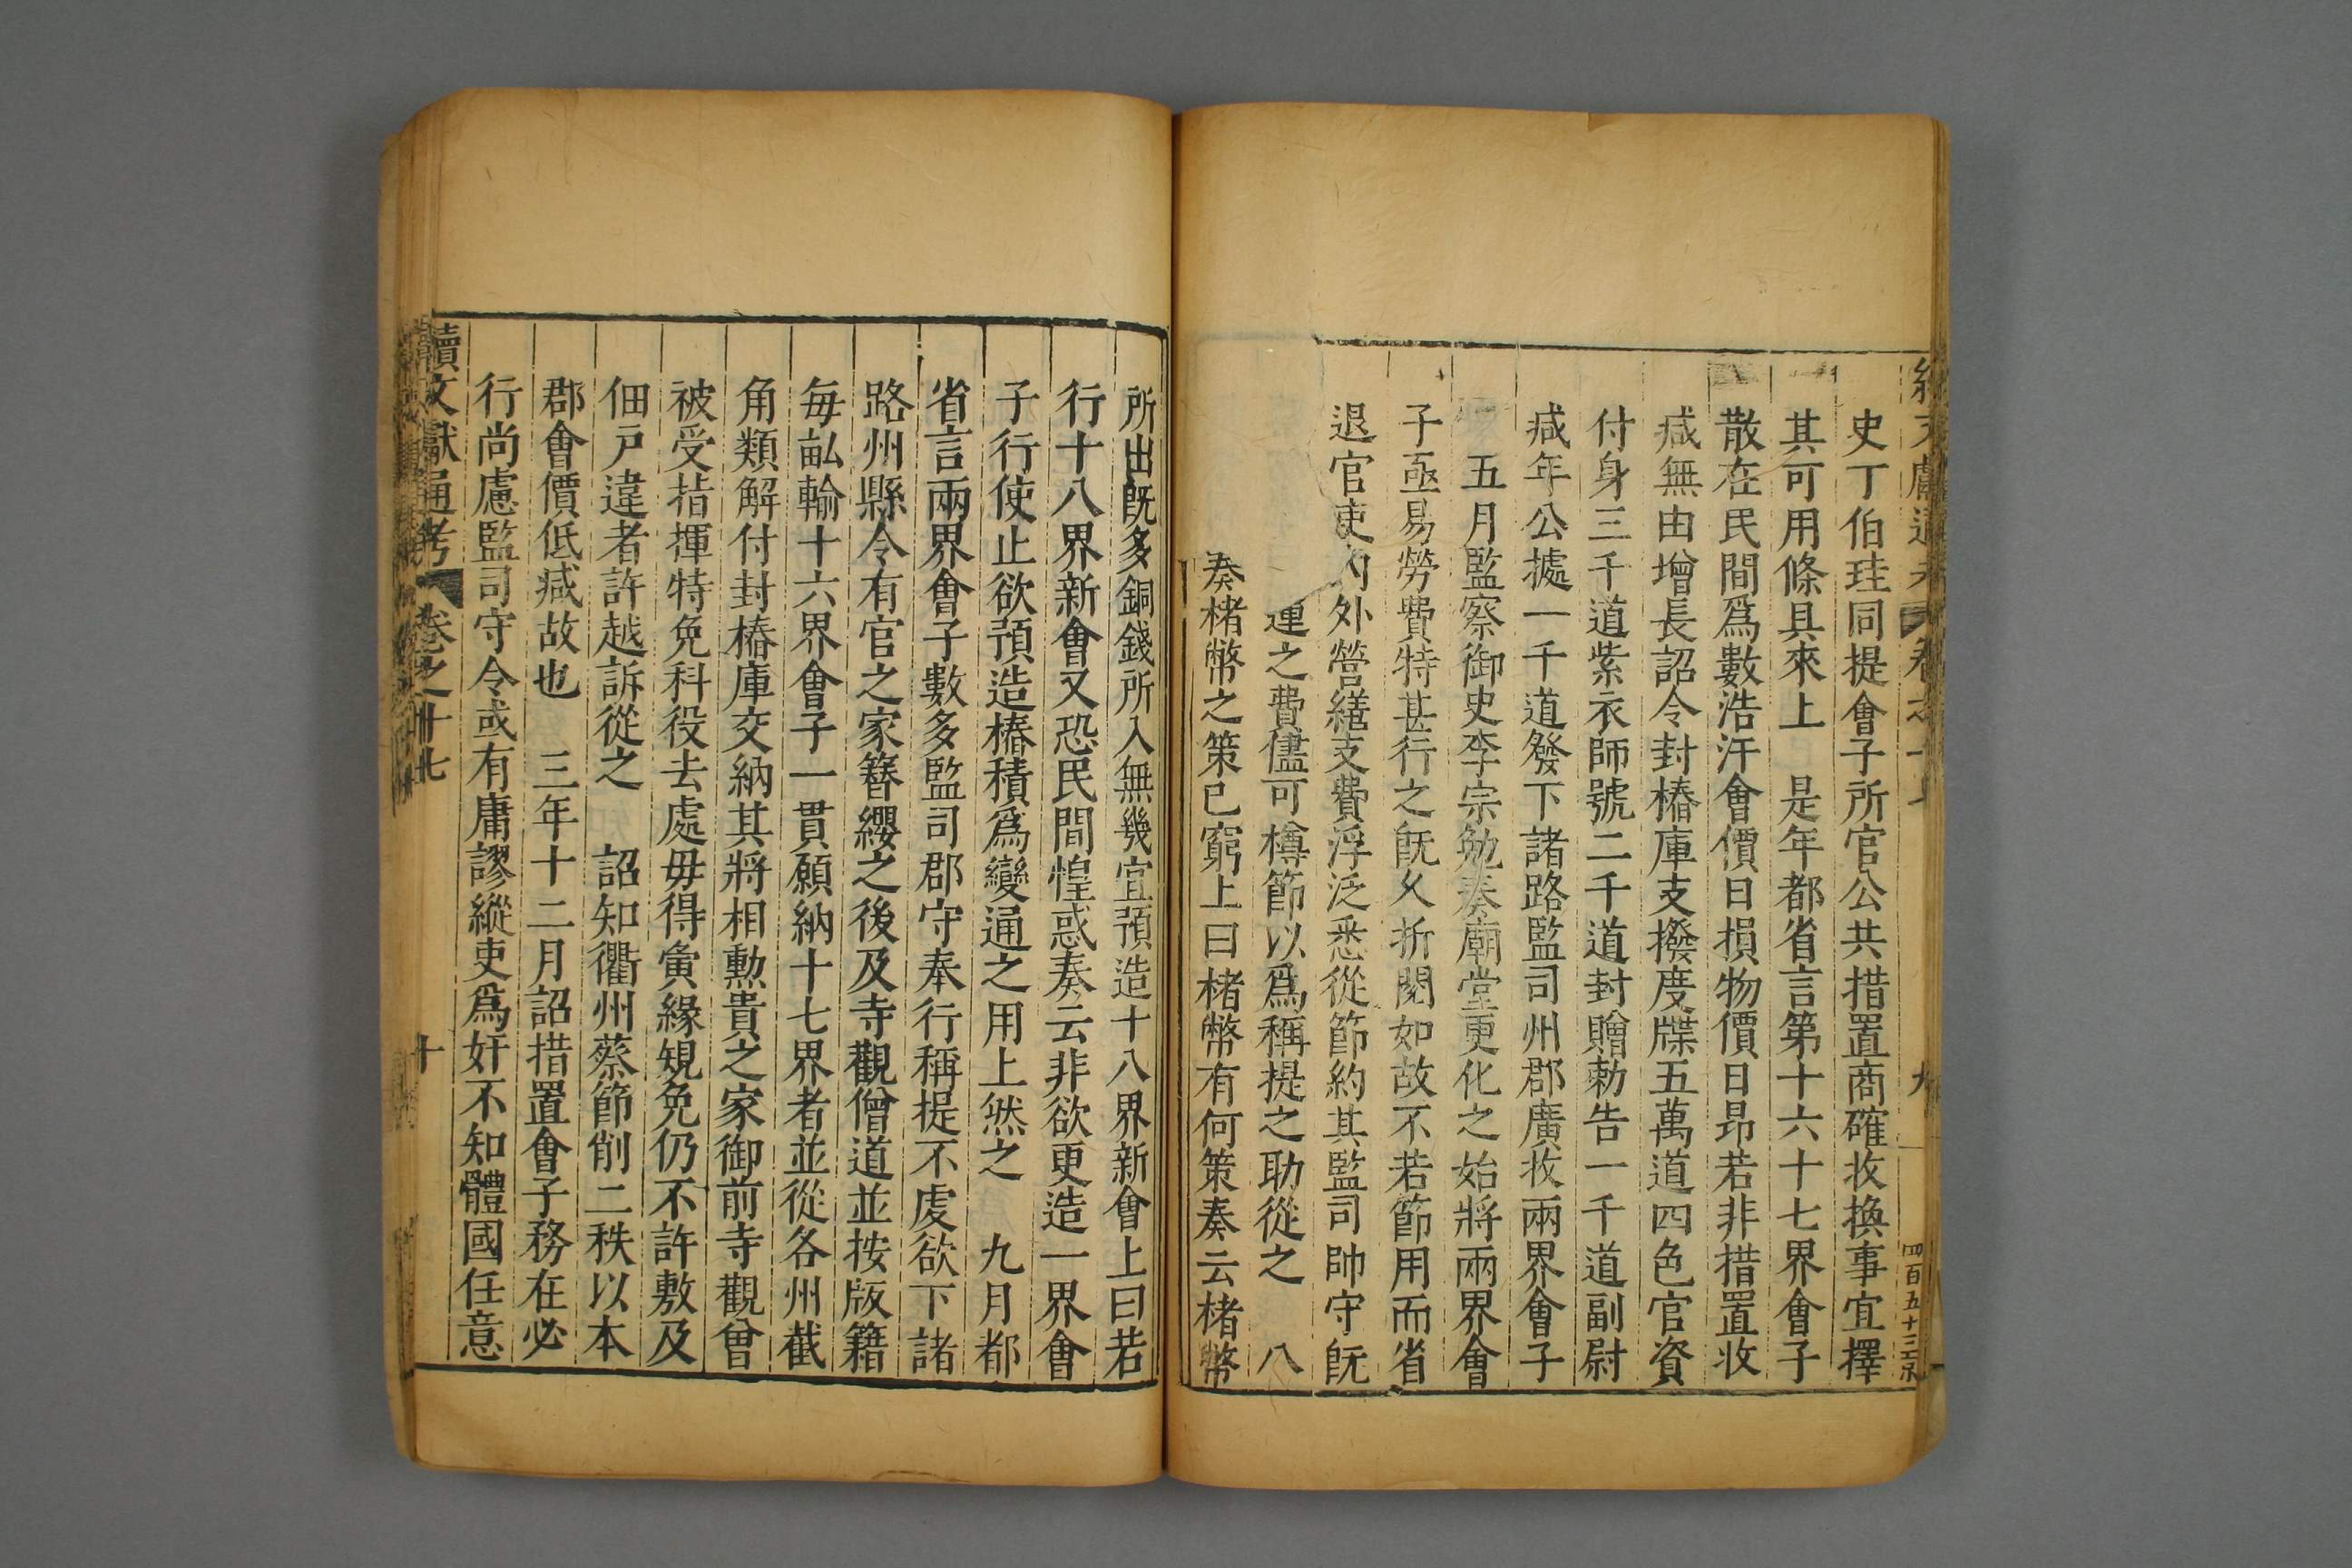 史丁伯珪同提會子所官公共措置商確收換事宜擇
其可用條具來上　是年都省言第十六十七界會子
散在民間爲數浩汗會價日損物價日昂若非措置收
減無由增長詔令封樁庫支撥度牒五萬道四色官資
付身三千道紫衣師號二千道封贈勅告一千道副尉
減年公㨿一千道發下諸路監司州郡廣收兩界會子
五月監察御史李宗勉奏廟堂更化之始將兩界會
子亟易勞費特甚行之旣久折閱如故不若節用而省
退官吏內外營繕支費浮泛悉從節約其監司帥守旣
運之費儘可樽節以爲稱提之助從之　八
奏楮幣之策已窮上曰楮幣有何策奏云楮幣
所出旣多銅錢所入無幾宜預造十八界新會上曰若
行十八界新會又恐民間惶惑奏云非欲更造一界會
子行使止欲預造樁積爲變通之用上然之　九月都
省言兩界會子數多監司郡守奉行稱提不虔欲下諸
路州縣令有官之家簪纓之後及寺觀僧道並按版籍
每畝輸十六界會子一貫願納十七界者並從各州截
角類解付封樁庫交納其將相勲貴之家御前寺觀曾
被受指揮特免科役去處毋得夤緣規免仍不許敷及
佃戸違者許越訴從之　詔知衢州蔡節削二秩以本
郡會價低減故也　三年十二月詔措置會子務在必
行尚慮監司守令或有庸謬縱吏爲奸不知體國任意
續文獻通考　卷之十七　十